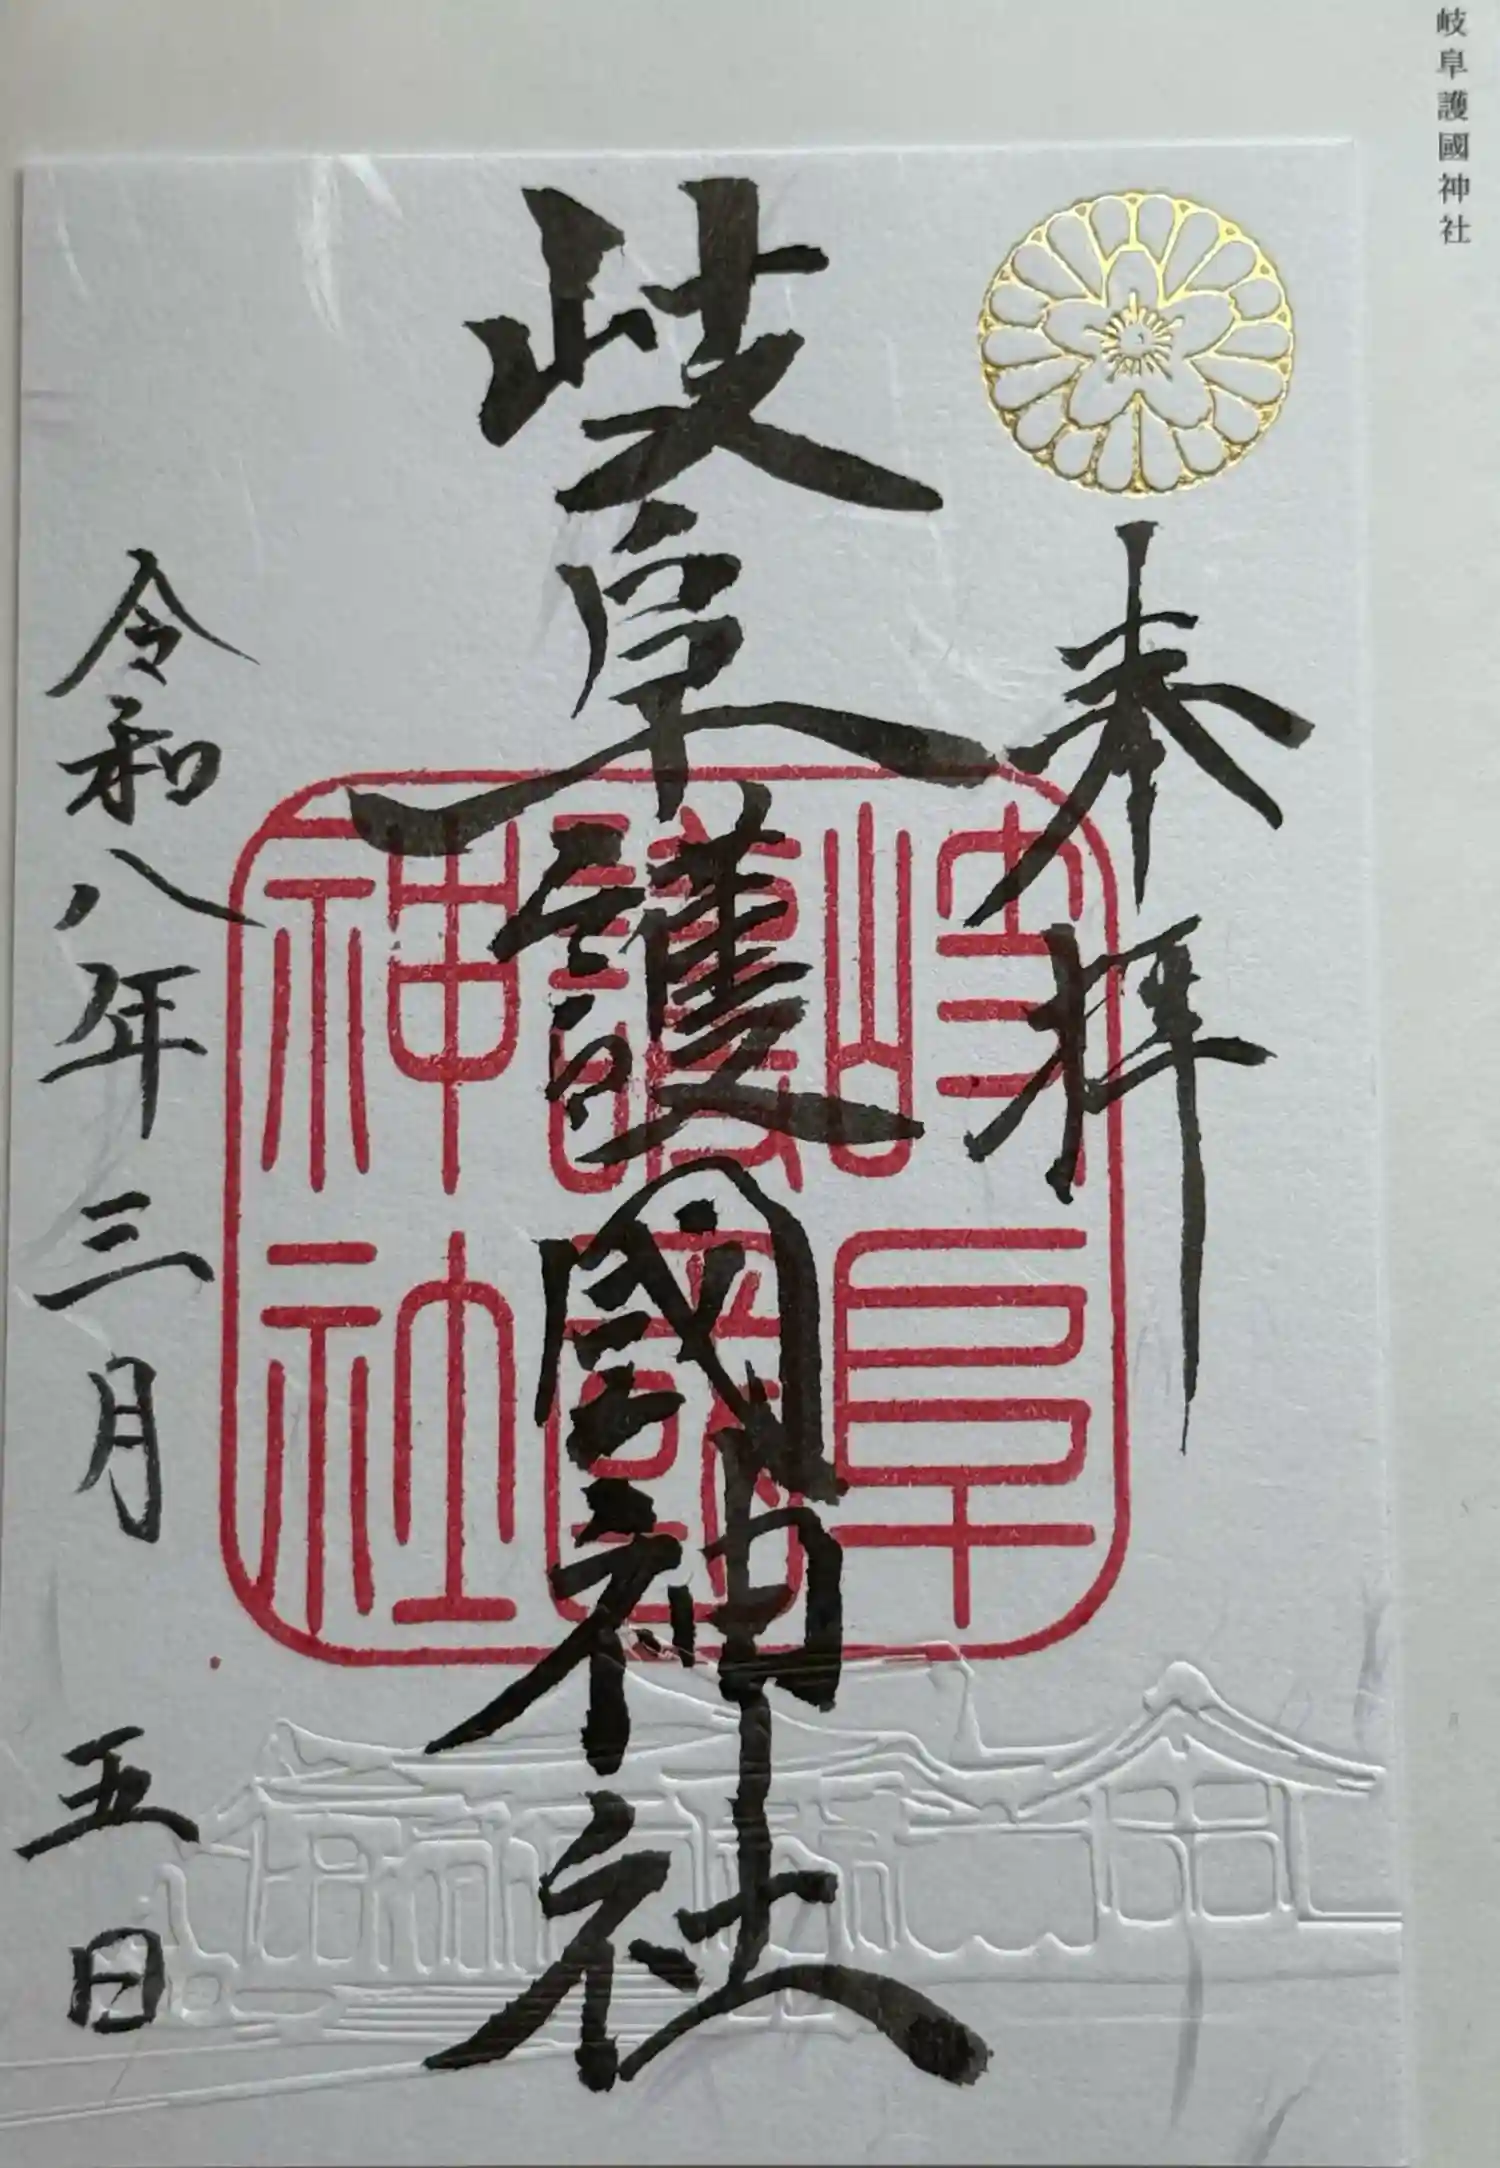 岐阜護國神社
奉拝
岐阜護國神社
岐阜
護國
神社
令和八年三月五日